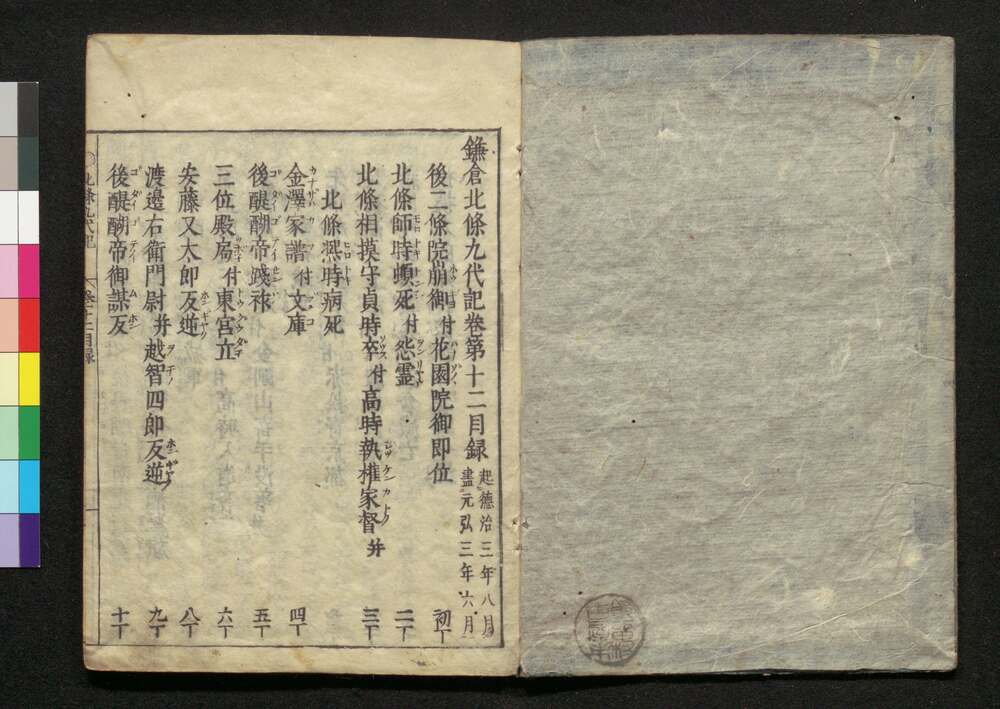 鎌倉北條九代記卷第十二目録
起德治三年八月
盡元弘三年六月
後二條院崩御付花園院御即位 初丁
北條師時頓死付怨霊 二丁
北條相摸守貞時卒付高時執権家督并 三丁
北條凞時病死
金澤家譜付文庫 四丁
後醍醐帝踐祚 五丁
三位殿局付東宮立 六丁
安藤又太郎反逆 八丁
渡邊右衛門尉并越智四郎反逆 九丁
後醍醐帝御謀反 十丁
北條九代記 卷十二目録